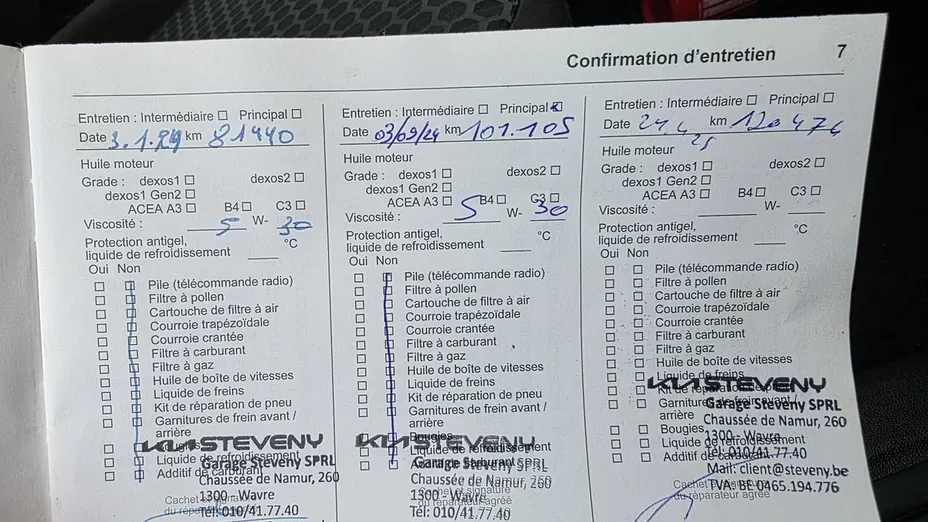 Confirmation d'entretien 7
Entretien : Intermédiaire Principal
Date 3.1.24 km 81440
Huile moteur
Grade : dexos1 dexos2
dexos1 Gen2
ACEA A3 B4 C3
Viscosité : 5 W- 30
Protection antigel,
liquide de refroidissement °C
Oui Non
Pile (télécommande radio)
Filtre à pollen
Cartouche de filtre à air
Courroie trapézoïdale
Courroie crantée
Filtre à carburant
Filtre à gaz
Huile de boîte de vitesses
Liquide de freins
Kit de réparation de pneu
Garnitures de frein avant /
arrière
KIA STEVENY
Liquide de refroidissement
Garage Steveny SPRL
Additif de carburant
Chaussée de Namur, 260
1300 - Wavre
Tél: 010/41.77.40
Entretien : Intermédiaire Principal
Date 03/09/24 km 101.105
Huile moteur
Grade : dexos1 dexos2
dexos1 Gen2
ACEA A3 B4 C3
Viscosité : 5 W- 30
Protection antigel,
liquide de refroidissement °C
Oui Non
Pile (télécommande radio)
Filtre à pollen
Cartouche de filtre à air
Courroie trapézoïdale
Courroie crantée
Filtre à carburant
Filtre à gaz
Huile de boîte de vitesses
Liquide de freins
Kit de réparation de pneu
Garnitures de frein avant /
arrière
Bougies
KIA STEVENY
Liquide de refroidissement
Garage Steveny SPRL
Chaussée de Namur, 260
1300 - Wavre
du réparateur agréé
Tél: 010/41.77.40
Entretien : Intermédiaire Principal
Date 24.4 km 120476
25
Huile moteur
Grade : dexos1 dexos2
dexos1 Gen2
ACEA A3 B4 C3
Viscosité : W-
Protection antigel,
liquide de refroidissement °C
Oui Non
Pile (télécommande radio)
Filtre à pollen
Cartouche de filtre à air
Courroie trapézoïdale
Courroie crantée
Filtre à carburant
Filtre à gaz
Huile de boîte de vitesses
Liquide de freins
KIA STEVENY
Garage Steveny SPRL
arrière
Chaussée de Namur, 260
Bougies
1300 - Wavre
Liquide de refroidissement
Tél: 010/41.77.40
Additif de carburant
Mail: client@steveny.be
TVA: BE 0465.194.776
du réparateur agréé